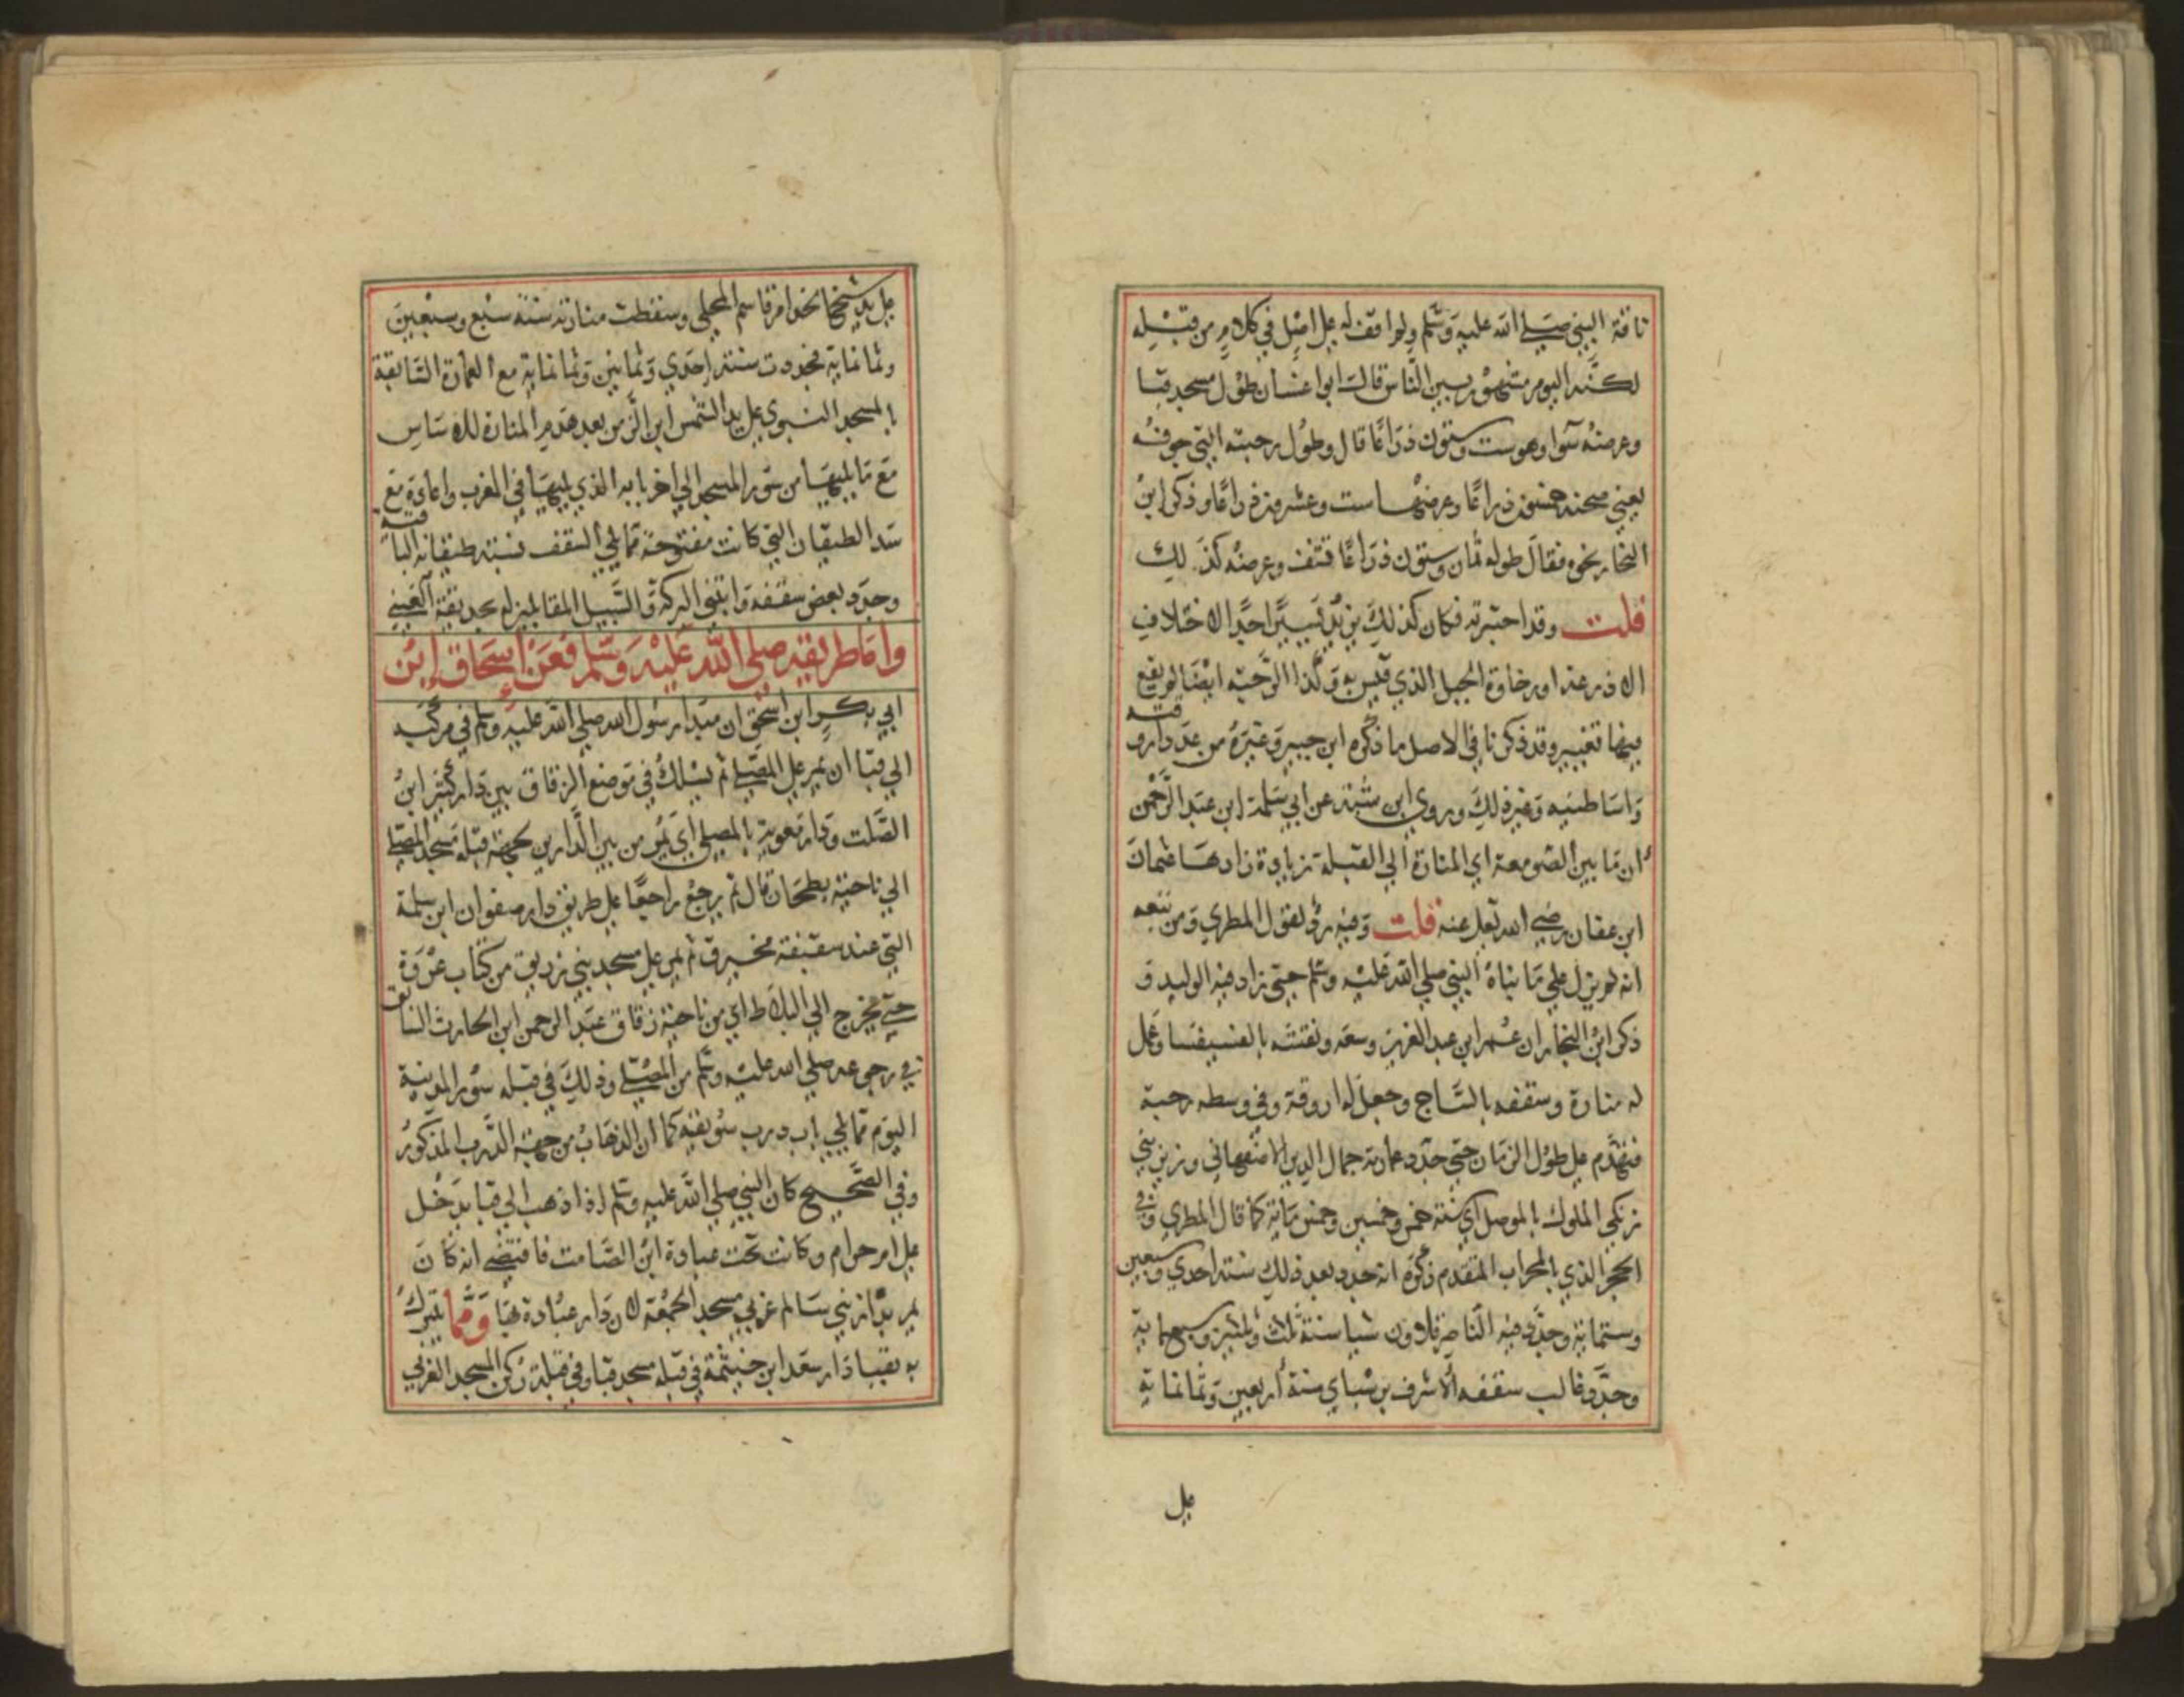 ناقة النبي صلى الله عليه وسلم ولم اقف له على اصل في كلام من قبله
لكنه اليوم مشهور بين الناس قالت ابوا غسان طول مسجد قبا
وعرضه سوا وهو ست وستون ذراعا قال وطول رحبته التي جوفه
يعني صحنه خمسون ذراعا وعرضها ست وعشرون ذراعا وذكر ابن
النجار نحوه فقال طوله ثمان وستون ذراعا تنقف وعرضه كذلك
قلت وقد اختبرته فكان كذلك يزيد يسيرا جدا لاختلاف
الاذرعة او رخاوة الحبل الذي قيس به وكذا الرحبة ايضا لم يقع
فيها تغيير وقد ذكرنا في الاصل ما ذكره ابن جبير وغيره من عدد اروقته
واساطينه وغير ذلك وروى ابن شبة عن ابي سلمة ابن عبد الرحمن
ان ما بين الصومعة اي المنارة الى القبلة زيادة زادها عثمان
ابن عفان رضي الله تعلى عنه قلت وفيه رد لقول المطري ومن تبعه
انه لم يزل على ما بناه النبي صلى الله عليه وسلم حتى زاد فيه الوليد و
ذكر ابن النجار ان عمر ابن عبد العزيز وسعه ونقشه بالفسيفسا وعمل
له منارة وسقفه بالساج وجعل له اروقة وفي وسطه رحبة
فتهدم على طول الزمان حتى جدد عمارته جمال الدين الاصفهاني وزير بني
زنكي الملوك بالموصل اي سنة خمس وخمسين وخمس ماية كما قال المطري وفي
الحجر الذي بالمحراب المتقدم ذكره انه جدد بعد ذلك سنة احدي وسبعين
وستماية وجدد فيه الناصر قلاون شيا سنة ثلث وثلثين وسبعماية
وجدد غالب سقفه الاشرف برسباي سنة اربعين وثمانماية
على
على يد شيخ الخدام قاسم المحلي وسقطت منارته سنة سبع وسبعين
وثمانماية فجددت سنة إحدي وثمانين وثمانماية مع العمارة السابقة
بالمسجد النبوي على يد الشمس ابن الزمن بعد هدم المنارة للاساس
مع ما يليها من سور المسجد الى اخر بابه الذي يليها في المغرب واعادته مع
سد الطيقان التي كانت مفتوحة مما يلي السقف فسبه طيقانه الباقية
وجدد بعض سقفه وابتنى البركة والسبيل المقابلين له بحديقة العيني
واما طريقه صلى الله عليه وسلم فعن اسحاق ابن
ابي بكر ابن اسحق ان مبدا رسول الله صلى الله عليه وسلم في مركبه
الى قبا ان يمر على المصلى ثم يسلك في موضع الزقاق بين دار كثير ابن
الصلت ودار معوية بالمصلى اي يمر من بين الدارين لجهة قبلة مسجد المصلى
الى ناحية بطحان قال ثم يرجع راجعا على طريق دار صفوان ابن سلمة
التي عند سقيفة محرق ثم يمر على مسجد بني زريق من كتاب عروة
حتى يخرج الى البلاط اي من ناحية زقاق عبد الرحمن ابن الحارث السابق
في رجوعه صلى الله عليه وسلم من المصلى وذلك في قبلة سور المدينة
اليوم مما يلي باب درب سويقة كما ان الذهاب من جهة الدرب المذكور
وفي الصحيح كان النبي صلى الله عليه وسلم اذا ذهب الى قبا يدخل
على ام حرام وكانت تحت عبادة ابن الصامت فاقتضى انه كان
يمر بدار بني سالم غربي مسجد الجمعة لان دار عبادة بها ومما يتبرك
به بقبا دار سعد ابن خيثمة في قبلة مسجد قبا وفي قبلة ركن المسجد الغربي